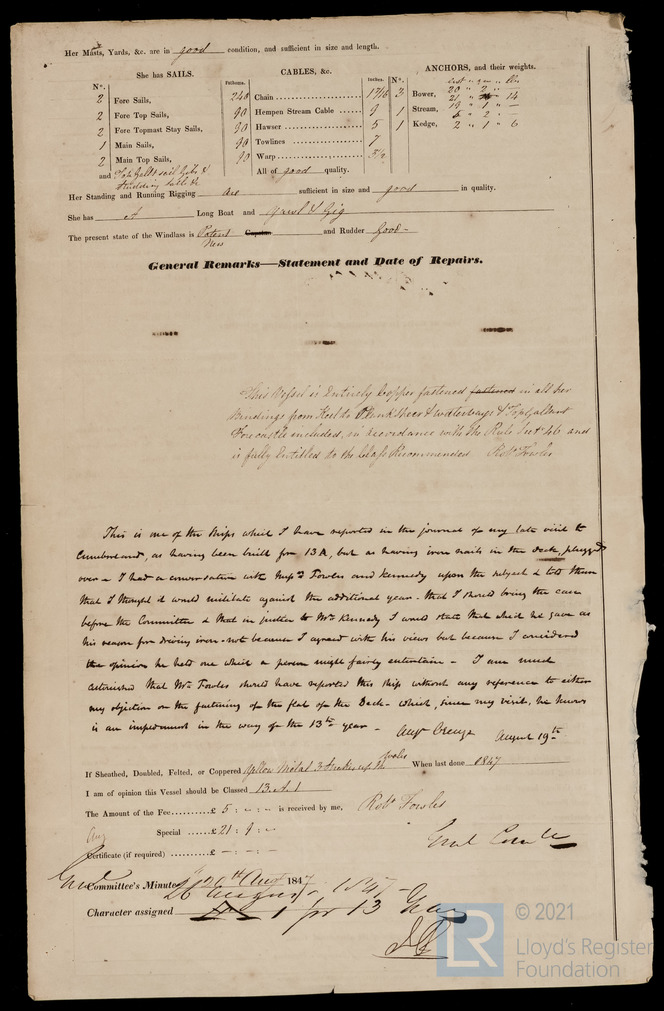 Her Masts, Yards, &c. are in good condition, and sufficient in size and length.
She has SAILS.
CABLES, &c.
ANCHORS, and their weights.
N°.
Fathoms.
Inches.
N°.
2 Fore Sails,
2 Fore Top Sails,
2 Fore Topmast Stay Sails,
1 Main Sails,
2 Main Top Sails,
and Top Gallt sail Jibs &
Studding Sails &c
240 Chain 1 7/16
90 Hempen Stream Cable 9
90 Hawser 5
90 Towlines 7
90 Warp 3 1/2
All of good quality.
3 Bower,
1 Stream,
1 Kedge, 2 " 1 " 6
Her Standing and Running Rigging are sufficient in size and good in quality.
She has A Long Boat and Yawl & Gig
The present state of the Windlass is Patent Capstan and Rudder Good -
New
General Remarks—Statement and Date of Repairs.
This Vessel is Entirely Copper fastened fastened in all her
Bendings from Keel to Plank Sheer & waterways & Top Gallant
Forecastle included, in accordance with the Rule Sect 46 and
is fully Entitled to the Class Recommended Robt Fowles
This is one of the ships which I have reported in the journal of my late visit to
Cumberland, as having been built for 13A, but as having iron nails in the deck, plugged
over - I had a conversation with Messrs Fowles and Kennedy upon the subject & told them
that I thought it would militate against the additional year - that I should bring the case
before the Committee & that in justice to Mr Kennedy I would state that which he gave as
his reason for driving iron - not because I agreed with his views but because I considered
the opinion he held one which a person might fairly entertain - I am much
astonished that Mr Fowles should have reported this ship without any reference to either
my objection or the fastening of the flat of the Deck - which, since my visit, he knows
is an impediment in the way of the 13th year - Augn Creuze August 19th
If Sheathed, Doubled, Felted, or Coppered Yellow Metal 3 Strakes up the Wales When last done 1847
I am of opinion this Vessel should be Classed 13 A 1
The Amount of the Fee £ 5 : - : - is received by me, Robt Fowles
Special £ 21 : 9 : -
Aug
Certificate (if required) £ - : - : -
Committee's Minute 20th Augt 1847
26 August 1847
Character assigned A 1 for 13 Years
© 2021
LR
Lloyd's Register
Foundation